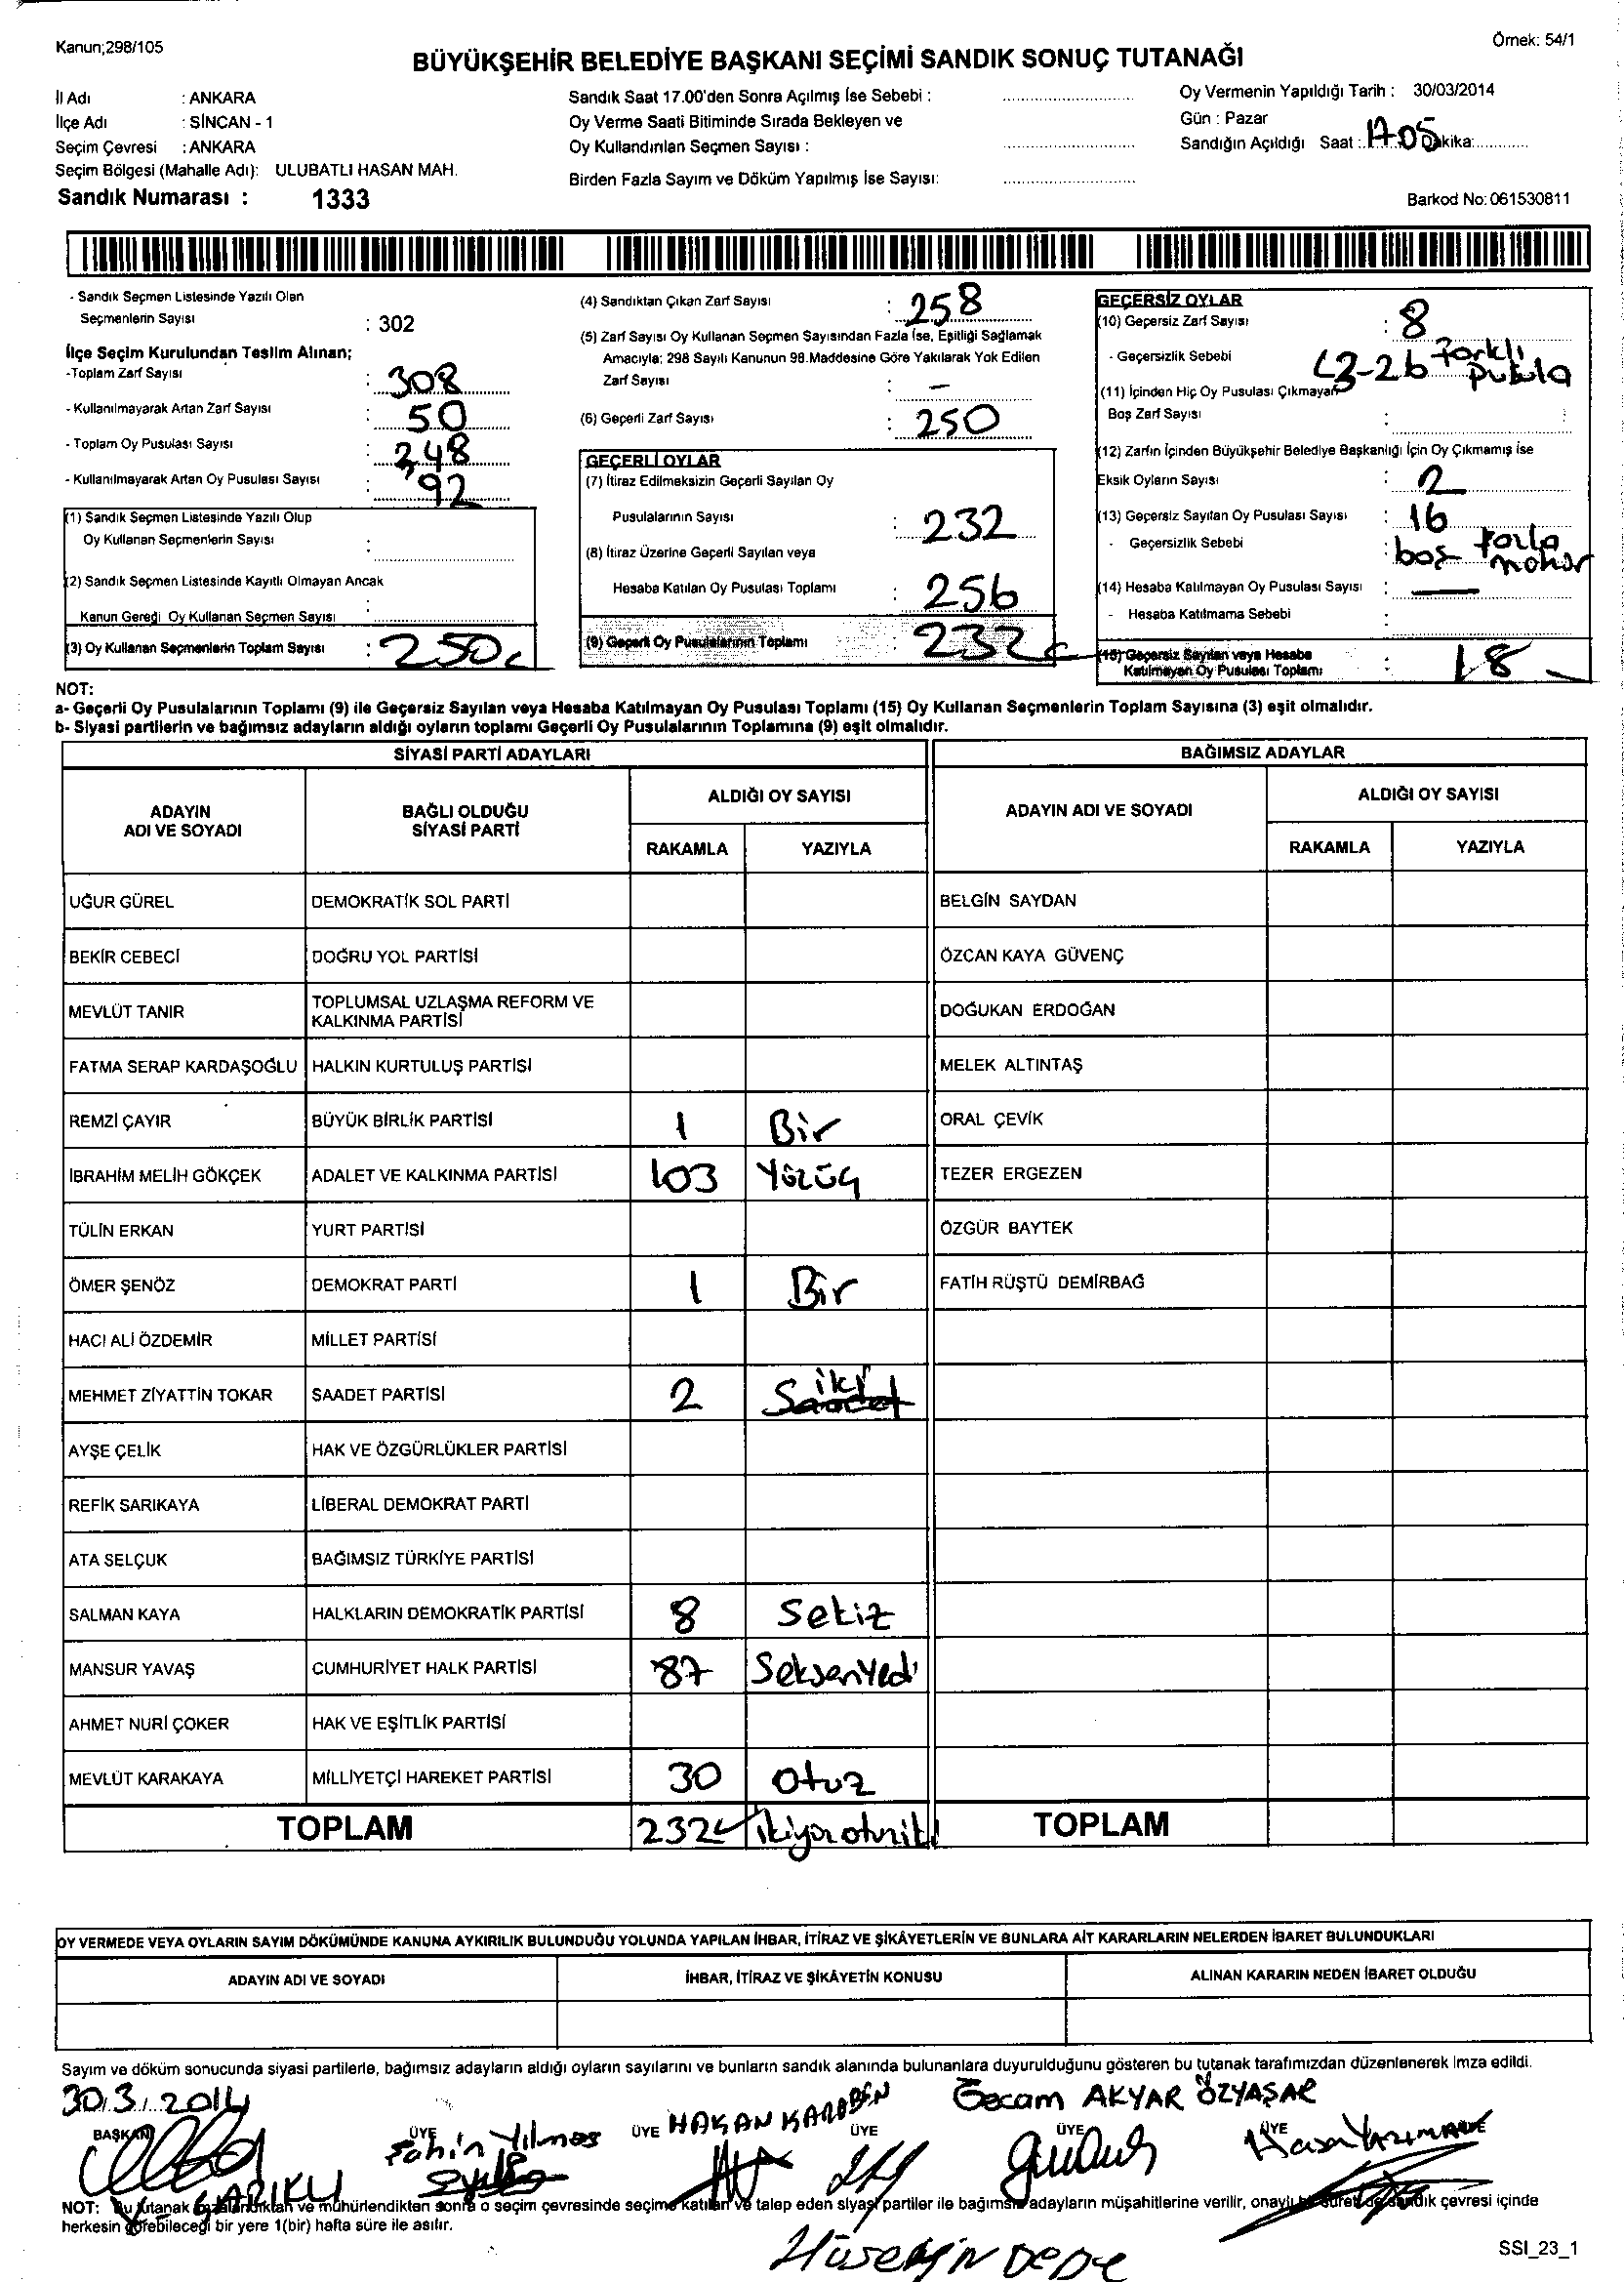 Kanun;298/105
Örnek: 54/1
BÜYÜKŞEHİR BELEDİYE BAŞKANI SEÇİMİ SANDIK SONUÇ TUTANAĞI
İl Adı : ANKARA
İlçe Adı : SİNCAN - 1
Seçim Çevresi : ANKARA
Seçim Bölgesi (Mahalle Adı): ULUBATLI HASAN MAH.
Sandık Numarası : 1333
Sandık Saat 17.00'den Sonra Açılmış İse Sebebi :
Oy Verme Saati Bitiminde Sırada Bekleyen ve
Oy Kullandırılan Seçmen Sayısı :
Birden Fazla Sayım ve Döküm Yapılmış İse Sayısı:
Oy Vermenin Yapıldığı Tarih : 30/03/2014
Gün : Pazar
Sandığın Açıldığı Saat : 17.05 Dakika:
Barkod No: 061530811
- Sandık Seçmen Listesinde Yazılı Olan
Seçmenlerin Sayısı : 302
İlçe Seçim Kurulundan Teslim Alınan;
-Toplam Zarf Sayısı : 308
- Kullanılmayarak Artan Zarf Sayısı : 50
- Toplam Oy Pusulası Sayısı : 348
- Kullanılmayarak Artan Oy Pusulası Sayısı : 92
(1) Sandık Seçmen Listesinde Yazılı Olup
Oy Kullanan Seçmenlerin Sayısı :
(2) Sandık Seçmen Listesinde Kayıtlı Olmayan Ancak
Kanun Gereği Oy Kullanan Seçmen Sayısı :
(3) Oy Kullanan Seçmenlerin Toplam Sayısı : 250
(4) Sandıktan Çıkan Zarf Sayısı : 258
(5) Zarf Sayısı Oy Kullanan Seçmen Sayısından Fazla İse, Eşitliği Sağlamak
Amacıyla; 298 Sayılı Kanunun 98.Maddesine Göre Yakılarak Yok Edilen
Zarf Sayısı : –
(6) Geçerli Zarf Sayısı : 250
GEÇERLİ OYLAR
(7) İtiraz Edilmeksizin Geçerli Sayılan Oy
Pusulalarının Sayısı : 232
(8) İtiraz Üzerine Geçerli Sayılan veya
Hesaba Katılan Oy Pusulası Toplamı : 256
(9) Geçerli Oy Pusulalarının Toplamı : 232
GEÇERSİZ OYLAR
(10) Geçersiz Zarf Sayısı : 8
- Geçersizlik Sebebi farklı
pusula
(11) İçinden Hiç Oy Pusulası Çıkmayan
Boş Zarf Sayısı :
(12) Zarfın İçinden Büyükşehir Belediye Başkanlığı İçin Oy Çıkmamış ise
Eksik Oyların Sayısı : 2
(13) Geçersiz Sayılan Oy Pusulası Sayısı : 16
- Geçersizlik Sebebi : boş fazla
mohür
(14) Hesaba Katılmayan Oy Pusulası Sayısı : —
- Hesaba Katılmama Sebebi :
(15) Geçersiz Sayılan veya Hesaba
Katılmayan Oy Pusulası Toplamı : 18
NOT:
a- Geçerli Oy Pusulalarının Toplamı (9) ile Geçersiz Sayılan veya Hesaba Katılmayan Oy Pusulası Toplamı (15) Oy Kullanan Seçmenlerin Toplam Sayısına (3) eşit olmalıdır.
b- Siyasi partilerin ve bağımsız adayların aldığı oyların toplamı Geçerli Oy Pusulalarının Toplamına (9) eşit olmalıdır.
SİYASİ PARTİ ADAYLARI BAĞIMSIZ ADAYLAR
ADAYIN
ADI VE SOYADI
BAĞLI OLDUĞU
SİYASİ PARTİ
ALDIĞI OY SAYISI
RAKAMLA YAZIYLA
ADAYIN ADI VE SOYADI
ALDIĞI OY SAYISI
RAKAMLA YAZIYLA
UĞUR GÜREL DEMOKRATİK SOL PARTİ BELGİN SAYDAN
BEKİR CEBECİ DOĞRU YOL PARTİSİ ÖZCAN KAYA GÜVENÇ
MEVLÜT TANIR TOPLUMSAL UZLAŞMA REFORM VE
KALKINMA PARTİSİ DOĞUKAN ERDOĞAN
FATMA SERAP KARDAŞOĞLU HALKIN KURTULUŞ PARTİSİ MELEK ALTINTAŞ
REMZİ ÇAYIR BÜYÜK BİRLİK PARTİSİ 1 Bir ORAL ÇEVİK
İBRAHİM MELİH GÖKÇEK ADALET VE KALKINMA PARTİSİ 103 Yüzüç TEZER ERGEZEN
TÜLİN ERKAN YURT PARTİSİ ÖZGÜR BAYTEK
ÖMER ŞENÖZ DEMOKRAT PARTİ 1 Bir FATİH RÜŞTÜ DEMİRBAĞ
HACI ALİ ÖZDEMİR MİLLET PARTİSİ
MEHMET ZİYATTİN TOKAR SAADET PARTİSİ 2 iki Saadet
AYŞE ÇELİK HAK VE ÖZGÜRLÜKLER PARTİSİ
REFİK SARIKAYA LİBERAL DEMOKRAT PARTİ
ATA SELÇUK BAĞIMSIZ TÜRKİYE PARTİSİ
SALMAN KAYA HALKLARIN DEMOKRATİK PARTİSİ 8 Sekiz
MANSUR YAVAŞ CUMHURİYET HALK PARTİSİ 87 Seksenyedi
AHMET NURİ ÇOKER HAK VE EŞİTLİK PARTİSİ
MEVLÜT KARAKAYA MİLLİYETÇİ HAREKET PARTİSİ 30 Otuz
TOPLAM 232 ikiyüzotuziki TOPLAM
OY VERMEDE VEYA OYLARIN SAYIM DÖKÜMÜNDE KANUNA AYKIRILIK BULUNDUĞU YOLUNDA YAPILAN İHBAR, İTİRAZ VE ŞİKÂYETLERİN VE BUNLARA AİT KARARLARIN NELERDEN İBARET BULUNDUKLARI
ADAYIN ADI VE SOYADI İHBAR, İTİRAZ VE ŞİKÂYETİN KONUSU ALINAN KARARIN NEDEN İBARET OLDUĞU
Sayım ve döküm sonucunda siyasi partilerle, bağımsız adayların aldığı oyların sayılarını ve bunların sandık alanında bulunanlara duyurulduğunu gösteren bu tutanak tarafımızdan düzenlenerek imza edildi.
30.3.2014
BAŞKAN ÜYE Şahin Yılmaz ÜYE HAKAN KARABEN ÜYE Gecam AKYAR ÖZYAŞAR ÜYE ÜYE Hasan
NOT: Bu tutanak imzalandıktan ve mühürlendikten sonra o seçim çevresinde seçime katılan ve talep eden siyasi partiler ile bağımsız adayların müşahitlerine verilir, onaylı bir sureti de sandık çevresi içinde
herkesin görebileceği bir yere 1(bir) hafta süre ile asılır.
Hüseyin DEDE
SSI_23_1